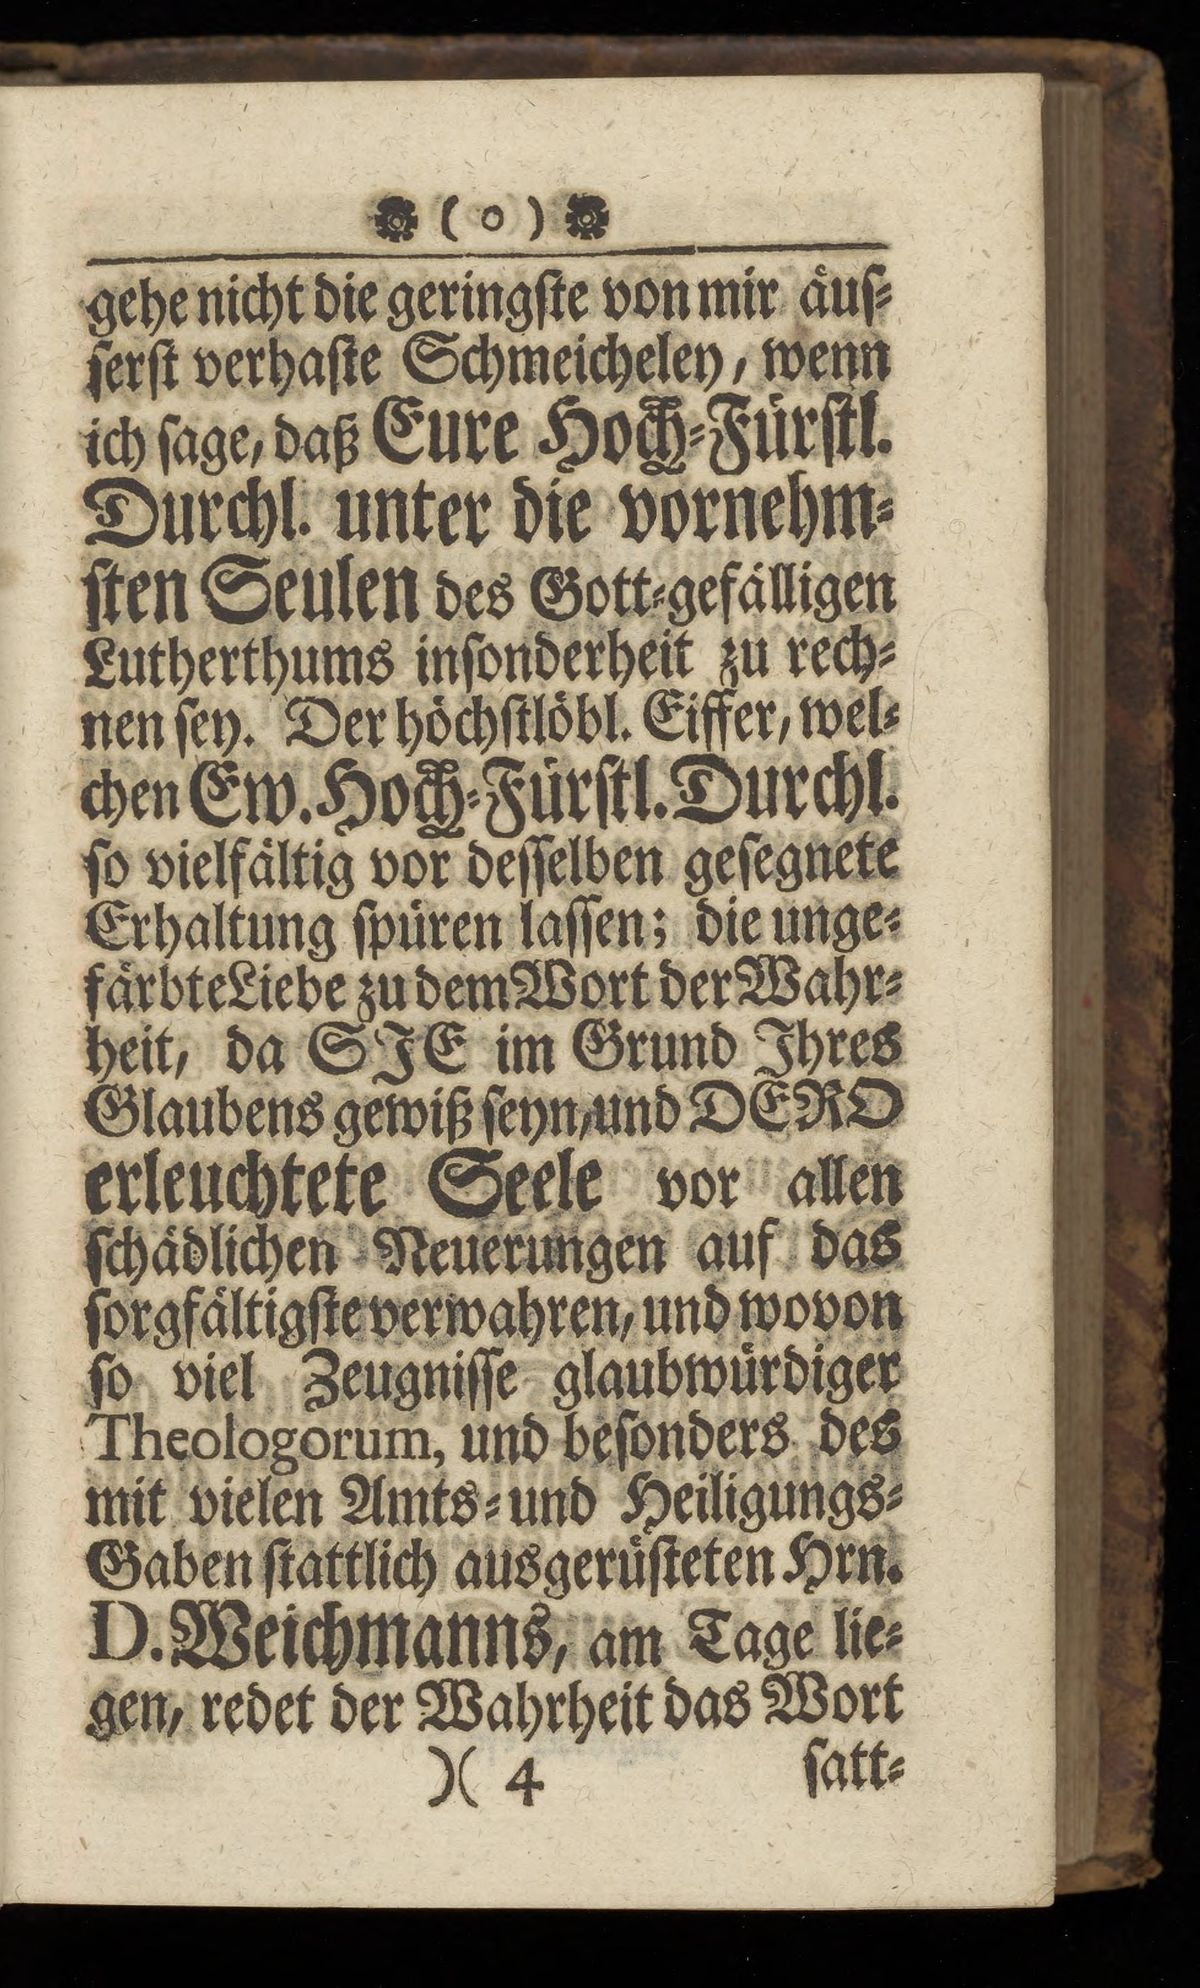 ( o )
gehe nicht die geringste von mir äus-
serst verhaste Schmeicheley, wenn
ich sage, daß Eure Hoch-Fürstl.
Durchl. unter die vornehm-
sten Seulen des Gott-gefälligen
Lutherthums insonderheit zu rech-
nen sey. Der höchstlöbl. Eiffer, wel-
chen Ew. Hoch-Fürstl. Durchl.
so vielfältig vor desselben gesegnete
Erhaltung spüren lassen; die unge-
färbte Liebe zu dem Wort der Wahr-
heit, da SIE im Grund Ihres
Glaubens gewiß seyn, und DERO
erleuchtete Seele vor allen
schädlichen Neuerungen auf das
sorgfältigste verwahren, und wovon
so viel Zeugnisse glaubwürdiger
Theologorum, und besonders des
mit vielen Amts-und Heiligungs-
Gaben stattlich ausgerüsteten Hrn.
D. Weichmanns, am Tage lie-
gen, redet der Wahrheit das Wort
)( 4 satt-